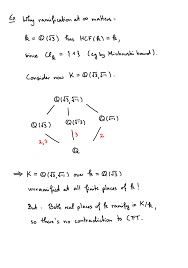 Eg Why ramification at ∞ matters:
k = ℚ(√3) has HCF(k) = k,
since Cl_k = {1} (eg by Minkowski bound).
Consider now K = ℚ(√3, √-1).
ℚ(√3, √-1)
ℚ(√3) ℚ(√-3) ℚ(√-1)
2,3 3 2
ℚ
⇒ K = ℚ(√3, √-1) over k = ℚ(√3)
unramified at all finite places of k!
But: Both real places of k ramify in K/k,
so there's no contradiction to CFT.